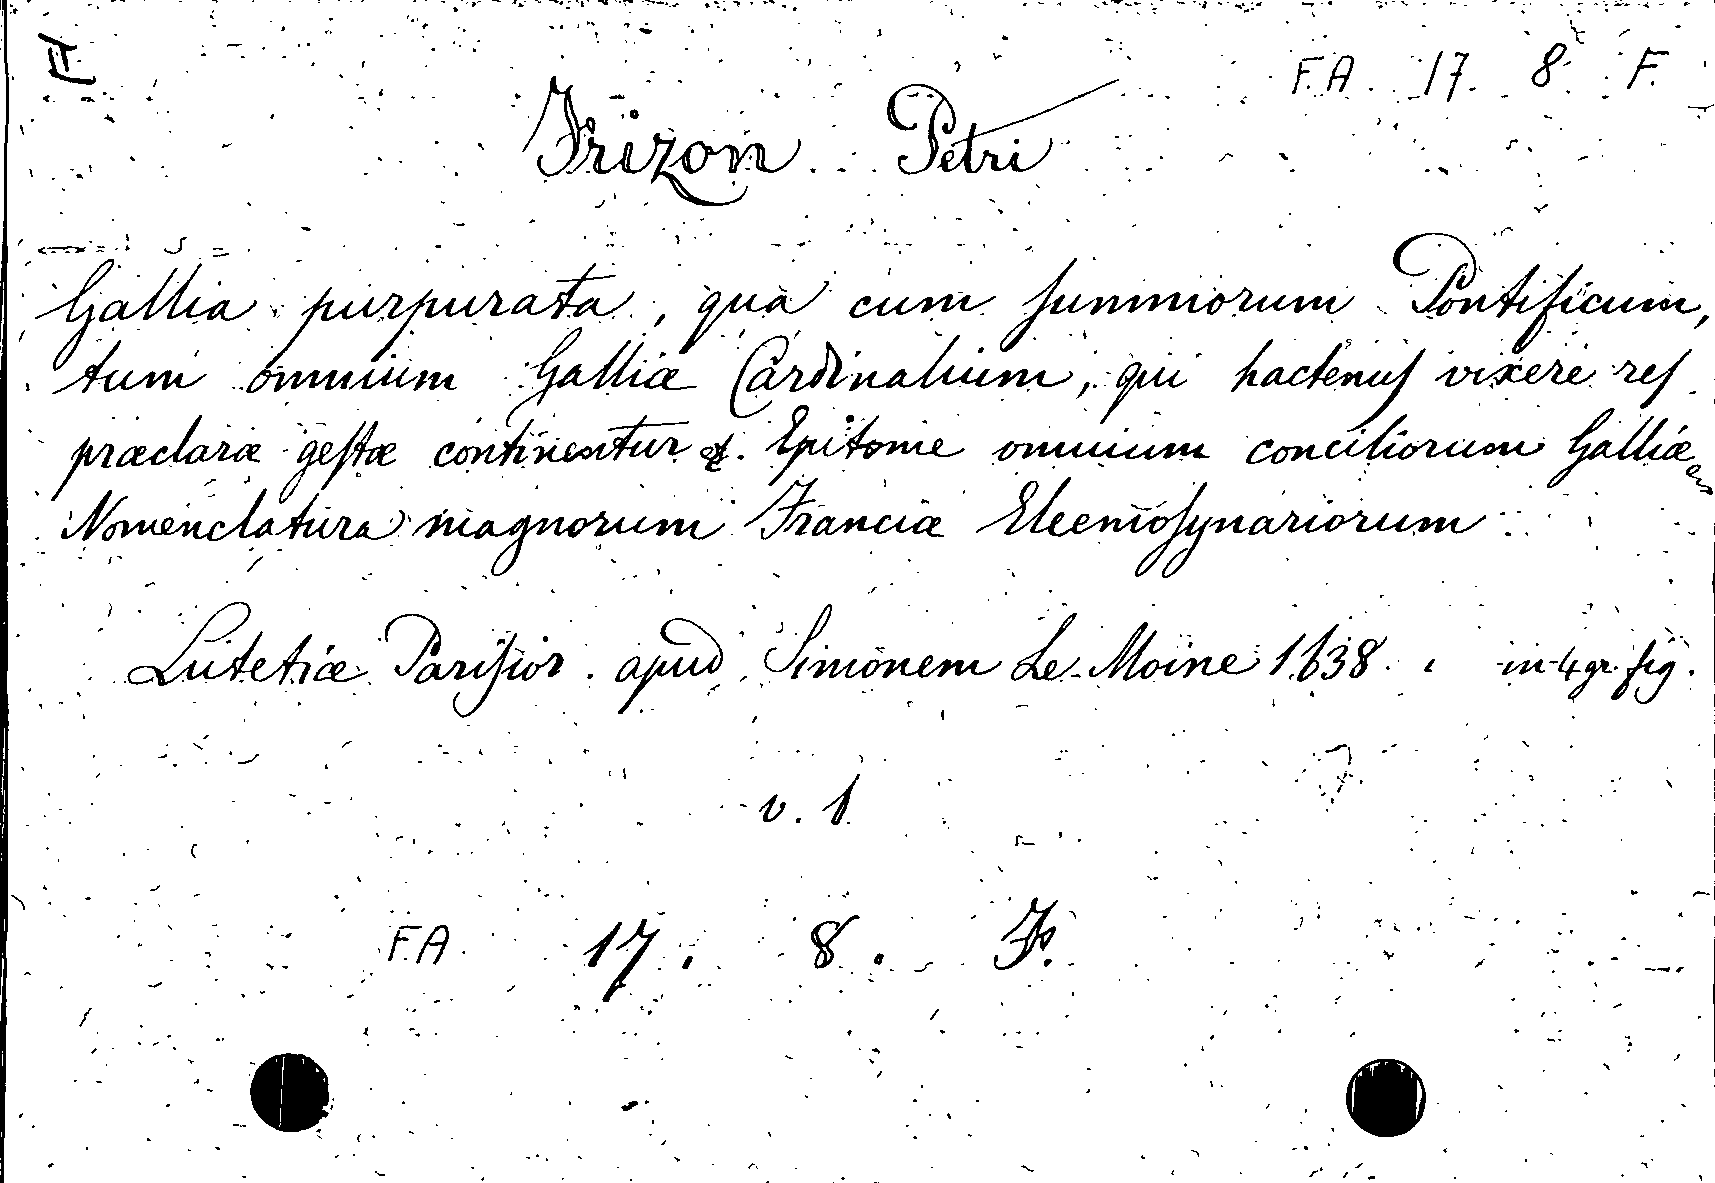 II
F.A. 17. 8. F.
Frizon Petri
Gallia purpurata, qua cum ſummorum Pontificum,
tum omnium Galliæ Cardinalium, qui hactenuſ vixere reſ
præclaræ geſtæ continentur &. Epitome omnium conciliorum Galliæ
Nomenclatura magnorum Franciæ Eleemoſynariorum
Lutetiæ Pariſior. apud Simonem Le-Moine 1638. in-4 gr. fig.
v. 1
F.A. 17. 8. F.